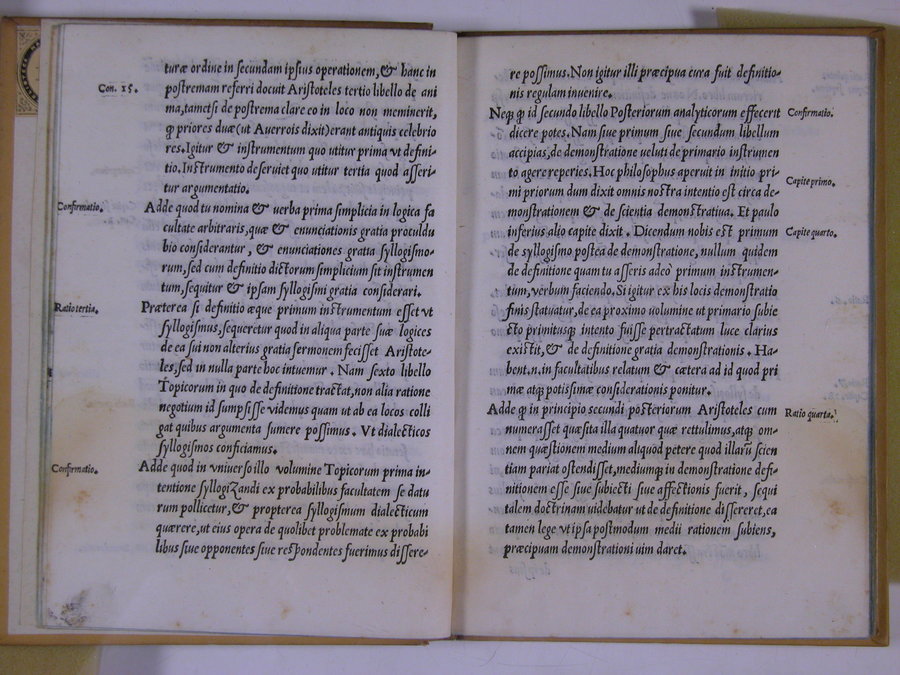 turæ ordine in secundam ipsius operationem, & hanc in
Con. 15.
postremam referri docuit Aristoteles tertio libello de ani
ma, tametsi de postrema clare eo in loco non meminerit,
ꝙ priores duæ (ut Auerrois dixit) erant antiquis celebrio
res. Igitur & instrumentum quo utitur prima vt defini-
tio. Instrumento deseruiet quo utitur tertia quod asseri-
tur argumentatio.
Confirmatio.
Adde quod tu nomina & uerba prima simplicia in logica fa
cultate arbitraris, quæ & enunciationis gratia proculdu
bio considerantur, & enunciationes gratia syllogismo-
rum, sed cum definitio dictorum simplicium sit instrumen
tum, sequitur & ipsam syllogismi gratia considerari.
Ratio tertia.
Præterea si definitio æque primum instrumentum esset vt
syllogismus, sequeretur quod in aliqua parte suæ logices
de ea sui non alterius gratia sermonem fecisset Aristote-
les, sed in nulla parte hoc intuemur. Nam sexto libello
Topicorum in quo de definitione tractat, non alia ratione
negotium id sumpsisse videmus quam ut ab ea locos colli
gat quibus argumenta sumere possimus. Vt dialecticos
syllogismos conficiamus.
Confirmatio.
Adde quod in vniuerso illo volumine Topicorum prima in-
tentione syllogizandi ex probabilibus facultatem se datu
rum pollicetur, & propterea syllogismum dialecticum
quærere, ut eius opera de quolibet problemate ex probabi
libus siue opponentes siue respondentes fuerimus dissere-
re possimus. Non igitur illi præcipua cura fuit definitio-
nis regulam inuenire.
Neqꝫ ꝙ id secundo libello Posteriorum analyticorum effecerit
Confirmatio.
dicere potes. Nam siue primum siue secundum libellum
accipias, de demonstratione ueluti de primario instrumen
to agere reperies. Hoc philosophus aperuit in initio pri-
Capite primo.
mi priorum dum dixit omnis nostra intentio est circa de-
monstrationem & de scientia demonstratiua. Et paulo
inferius alio capite dixit. Dicendum nobis est primum
Capite quarto.
de syllogismo postea de demonstratione, nullum quidem
de definitione quam tu asseris adeo primum instrumen-
tum, verbum faciendo. Si igitur ex his locis demonstratio
finis statuatur, de ea proximo uolumine ut primario subie
cto primitusqꝫ intento fuisse pertractatum luce clarius
existit, & de definitione gratia demonstrationis. Ha-
bent.n. in facultatibus relatum & cætera ad id quod pri
mæ atqꝫ potissimæ considerationis ponitur.
Adde ꝙ in principio secundi posteriorum Aristoteles cum
Ratio quarta.
numerasset quæsita illa quatuor quæ rettulimus, atqꝫ om-
nem quæstionem medium aliquod petere quod illarũ scien
tiam pariat ostendisset, mediumqꝫ in demonstratione defi-
nitionem esse siue subiecti siue affectionis fuerit, sequi
talem doctrinam uidebatur ut de definitione dissereret, ea
tamen lege vt ipsa postmodum medii rationem subiens,
præcipuam demonstrationi uim daret.